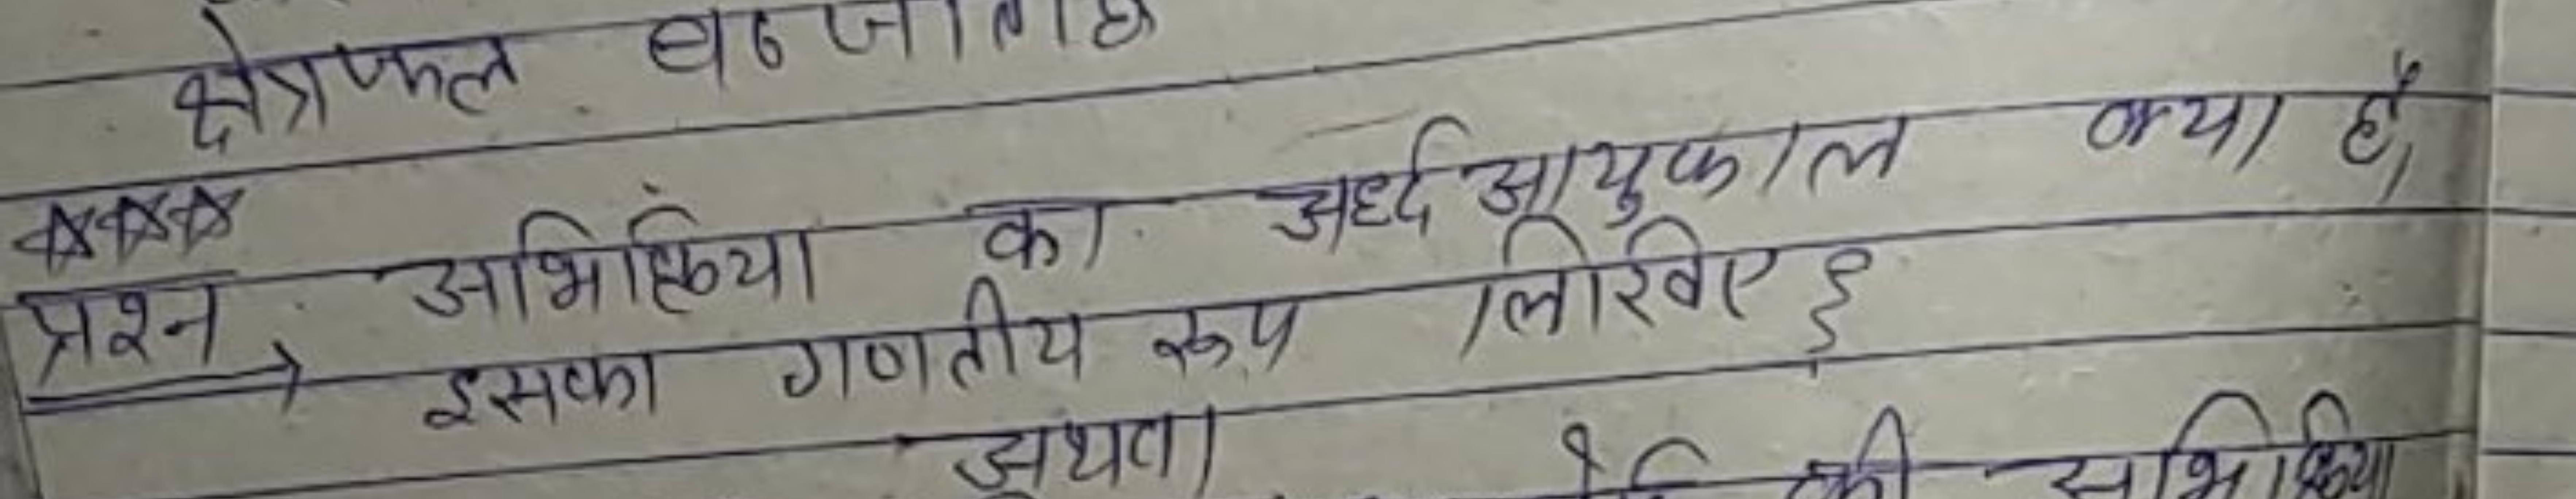 क्षेत्रफल बढ जाता है
***
प्रश्न अभिक्रिया का अर्ध्द आयुकाल क्या है,
→ इसका गणतीय रूप लिखिए ?
अथवा
की अभिक्रिया